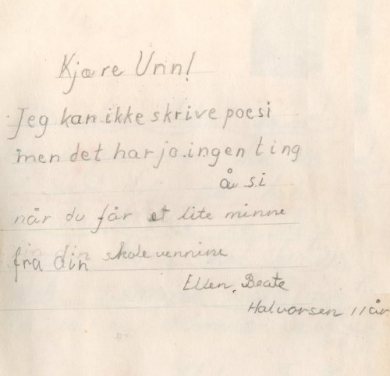 Kjære Unn!
Jeg kan ikke skrive poesi
men det har jo ingen ting
å si
når du får et lite minne
fra din skolevennine
Ellen, Beate
Halvorsen 11 år